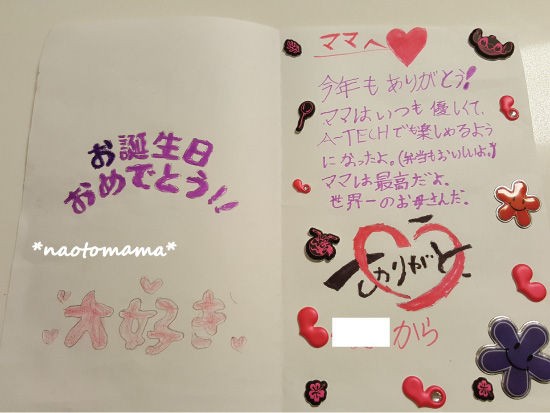 お誕生日
おめでとう!!
*naotomama*
大好き
ママへ
今年もありがとう!
ママはいつも優しくて、
A-TECHでも楽しめるよう
になったよ。(弁当もおいしいよ。)
ママは最高だよ。
世界一のお母さんだ。
ありがと
から